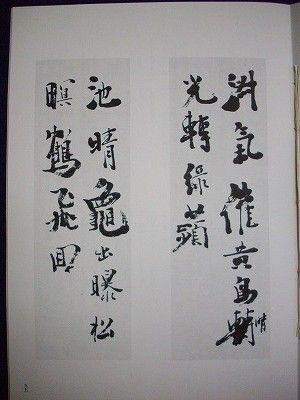 淑氣催黄鳥轉晴
光轉緑蘋
池晴龜出曝松
暝鶴飛回